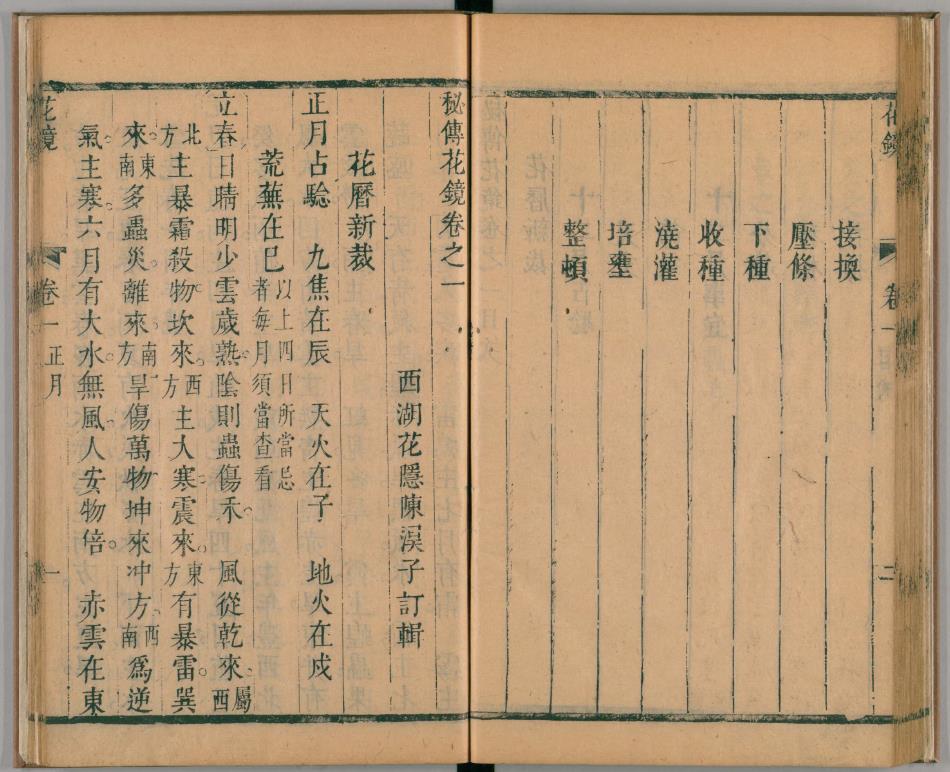 花鏡 卷一 二
接換
壓條
下種
收種
澆灌
培壅
整頓
秘傳花鏡卷之一
西湖花隱陳淏子訂輯
花曆新裁
正月占驗 九焦在辰 天火在子 地火在戍
荒蕪在巳 以上四日所當忌
者每月須當查看
立春日晴明少雲歲熟。陰則蟲傷禾。 風從乾來。屬西
北方主暴霜殺物。坎來。西方主大寒。震來。東方有暴雷。巽
來。東南多蟲災。離來。南方旱傷萬物。坤來冲方。西南爲逆
氣主寒。六月有大水。無風人安物倍。 赤雲在東
花鏡 卷一 正月 一